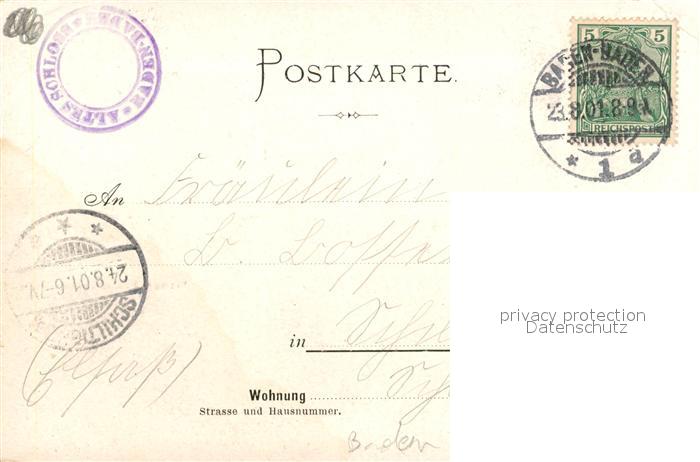 BADEN-BADEN * ALTES SCHLOSS *
5 5
REICHSPOST
BADEN-BADEN
23.8.01.8-9
* 1 a
POSTKARTE.
An Fräulein
24.8.01.6-7V.
SCHILTIG
in
(Elsaß)
Wohnung
Strasse und Hausnummer.
Baden
privacy protection
Datenschutz